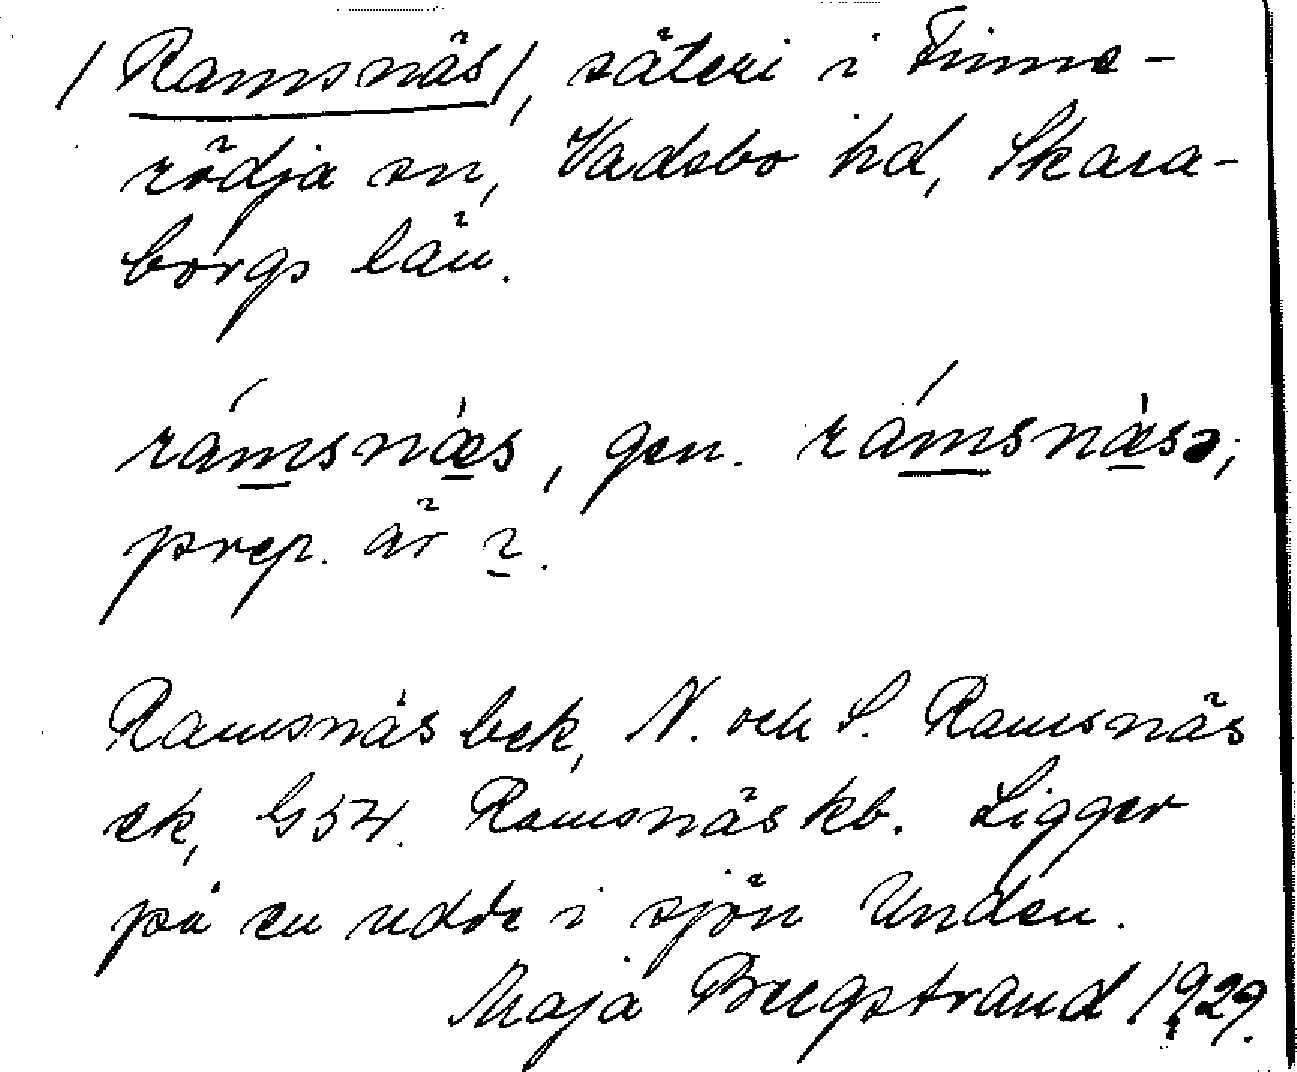 /Ramsnäs/, säteri i Finne-
rödja sn, Vadsbo hd, Skara-
borgs län.
rámsnæ̀s, gen. rámsnæ̀sə;
prep. är
Ramsnäs bek, N. och S. Ramsnäs
ek, G54. Ramsnäs kb. Ligger
på en udde i sjön Unden.
Maja Bergstrand 1929.